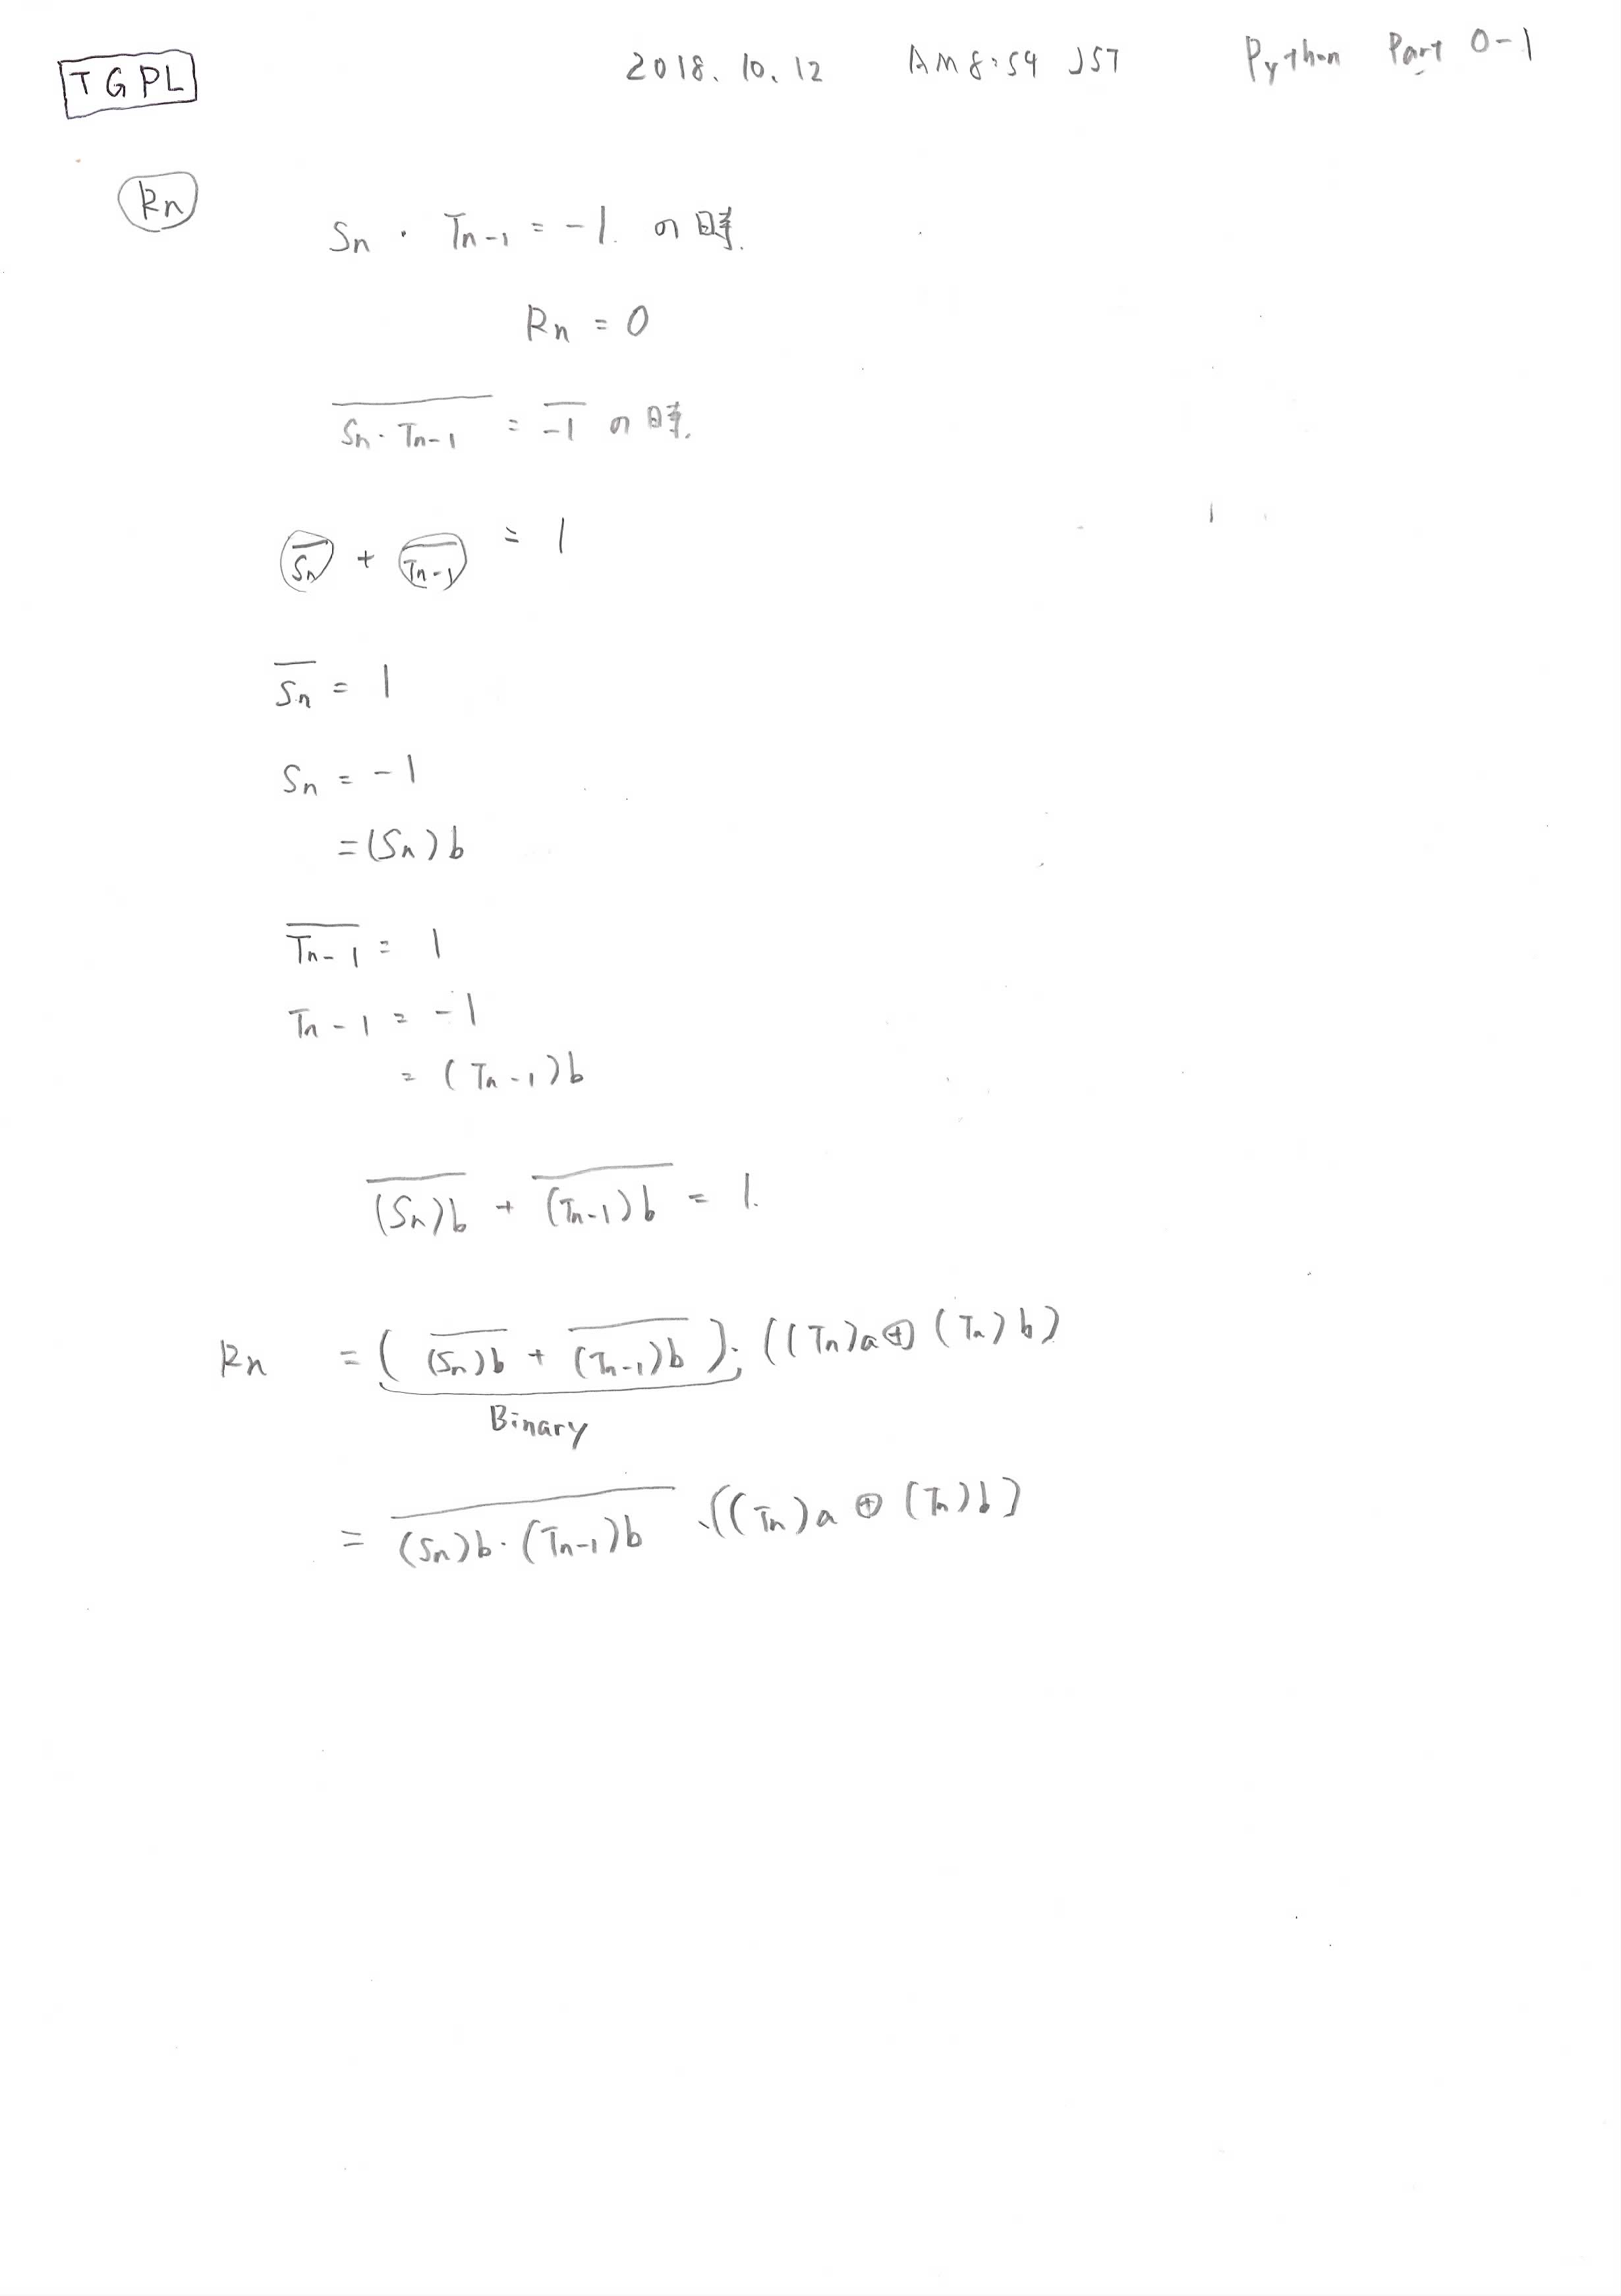 TGPL 2018.10.12 AM 8:54 JST Python Part 0-1
Rn
Sn · Tn-1 = -1. の時.
Rn = 0
\overline{Sn · Tn-1} = \overline{-1} の時.
\overline{Sn} + \overline{Tn-1} = 1
\overline{Sn} = 1
Sn = -1
= (Sn)b
\overline{Tn-1} = 1
Tn-1 = -1
= (Tn-1)b
\overline{(Sn)b} + \overline{(Tn-1)b} = 1.
Rn = ( \overline{(Sn)b} + \overline{(Tn-1)b} ) · ((Tn)a ⊕ (Tn)b)
Binary
= \overline{(Sn)b · (Tn-1)b} · ((Tn)a ⊕ (Tn)b)